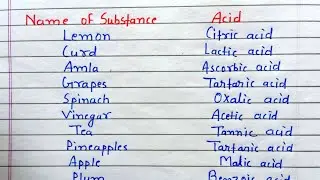 Name of Substance Acid
Lemon Citric acid
Curd Lactic acid
Amla Ascorbic acid
Grapes Tartaric acid
Spinach Oxalic acid
Vinegar Acetic acid
Tea Tannic acid
Pineapples Tartanic acid
Apple Malic acid
Plum Benzoic acid